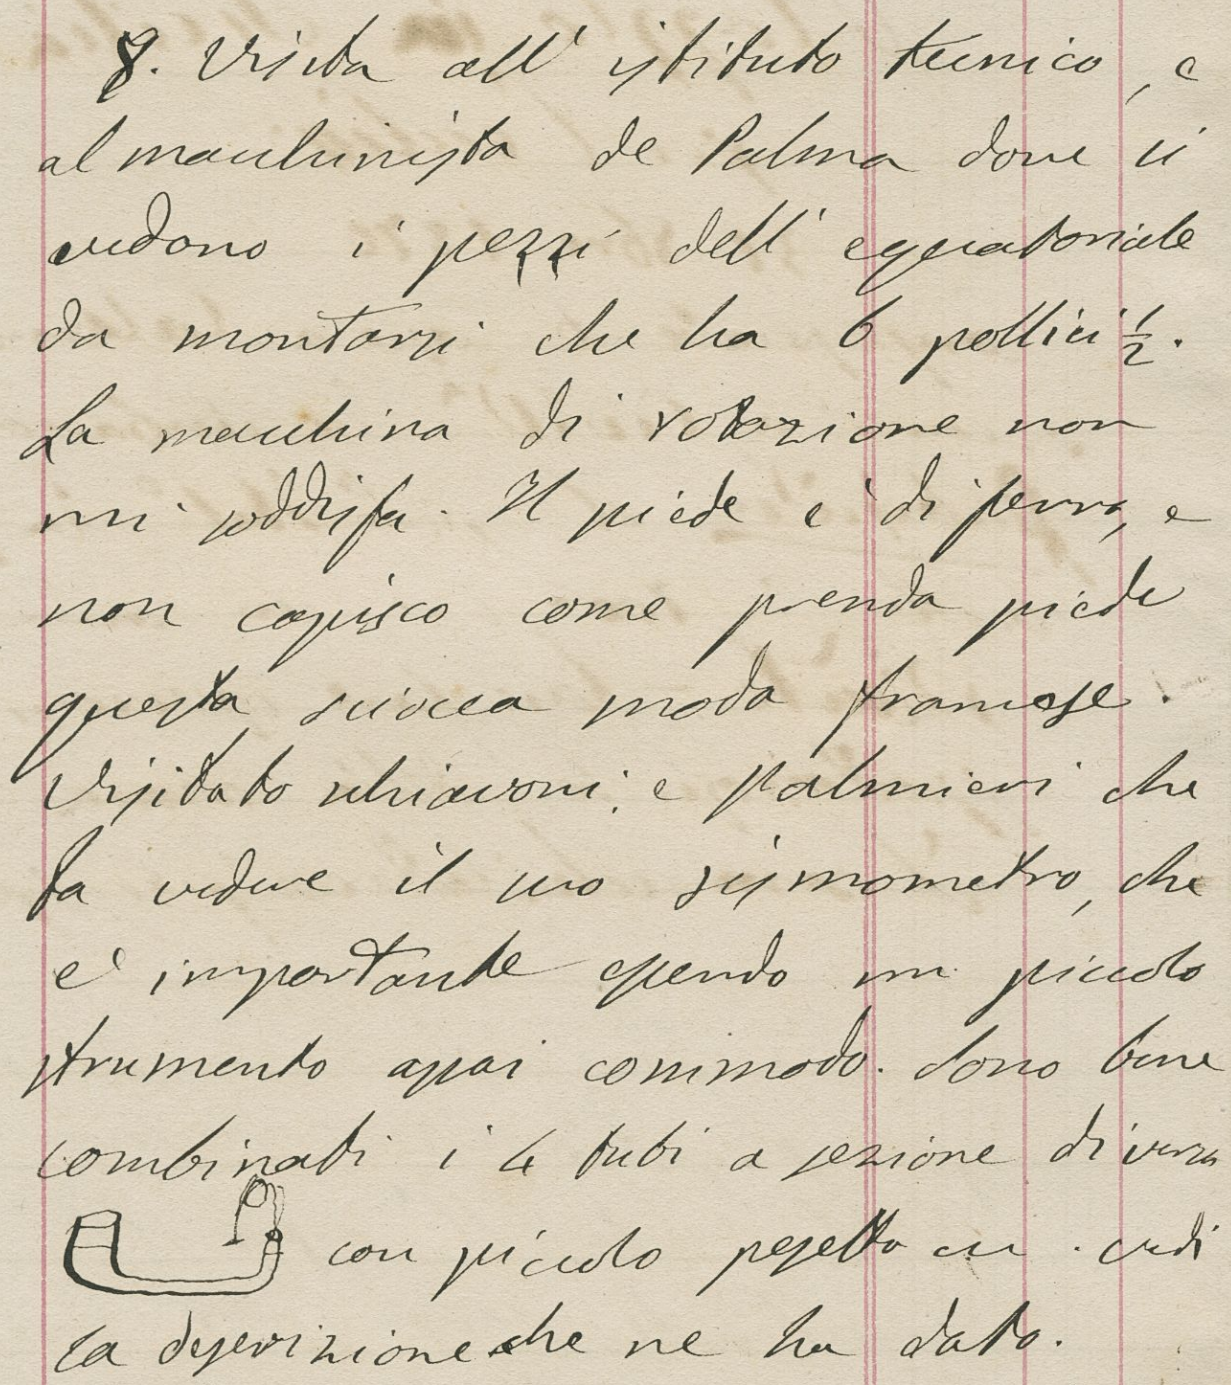 8. Visita all' istituto tecnico, e
al macchinista de Palma dove si
vedono i pezzi dell' equatoriale
da montarsi che ha 6 pollici 1/2.
La macchina di rotazione non
mi soddisfa. Il piede è di ferro, e
non capisco come prenda piede
questa sciocca moda francese.
Visitato schiavoni, e Palmieri che
fa vedere il suo sismometro, che
e' importante essendo un piccolo
strumento assai commodo. Sono bene
combinati i 4 tubi a sezione diversa
con piccolo pesetto vedi
la descrizione che ne ha dato.